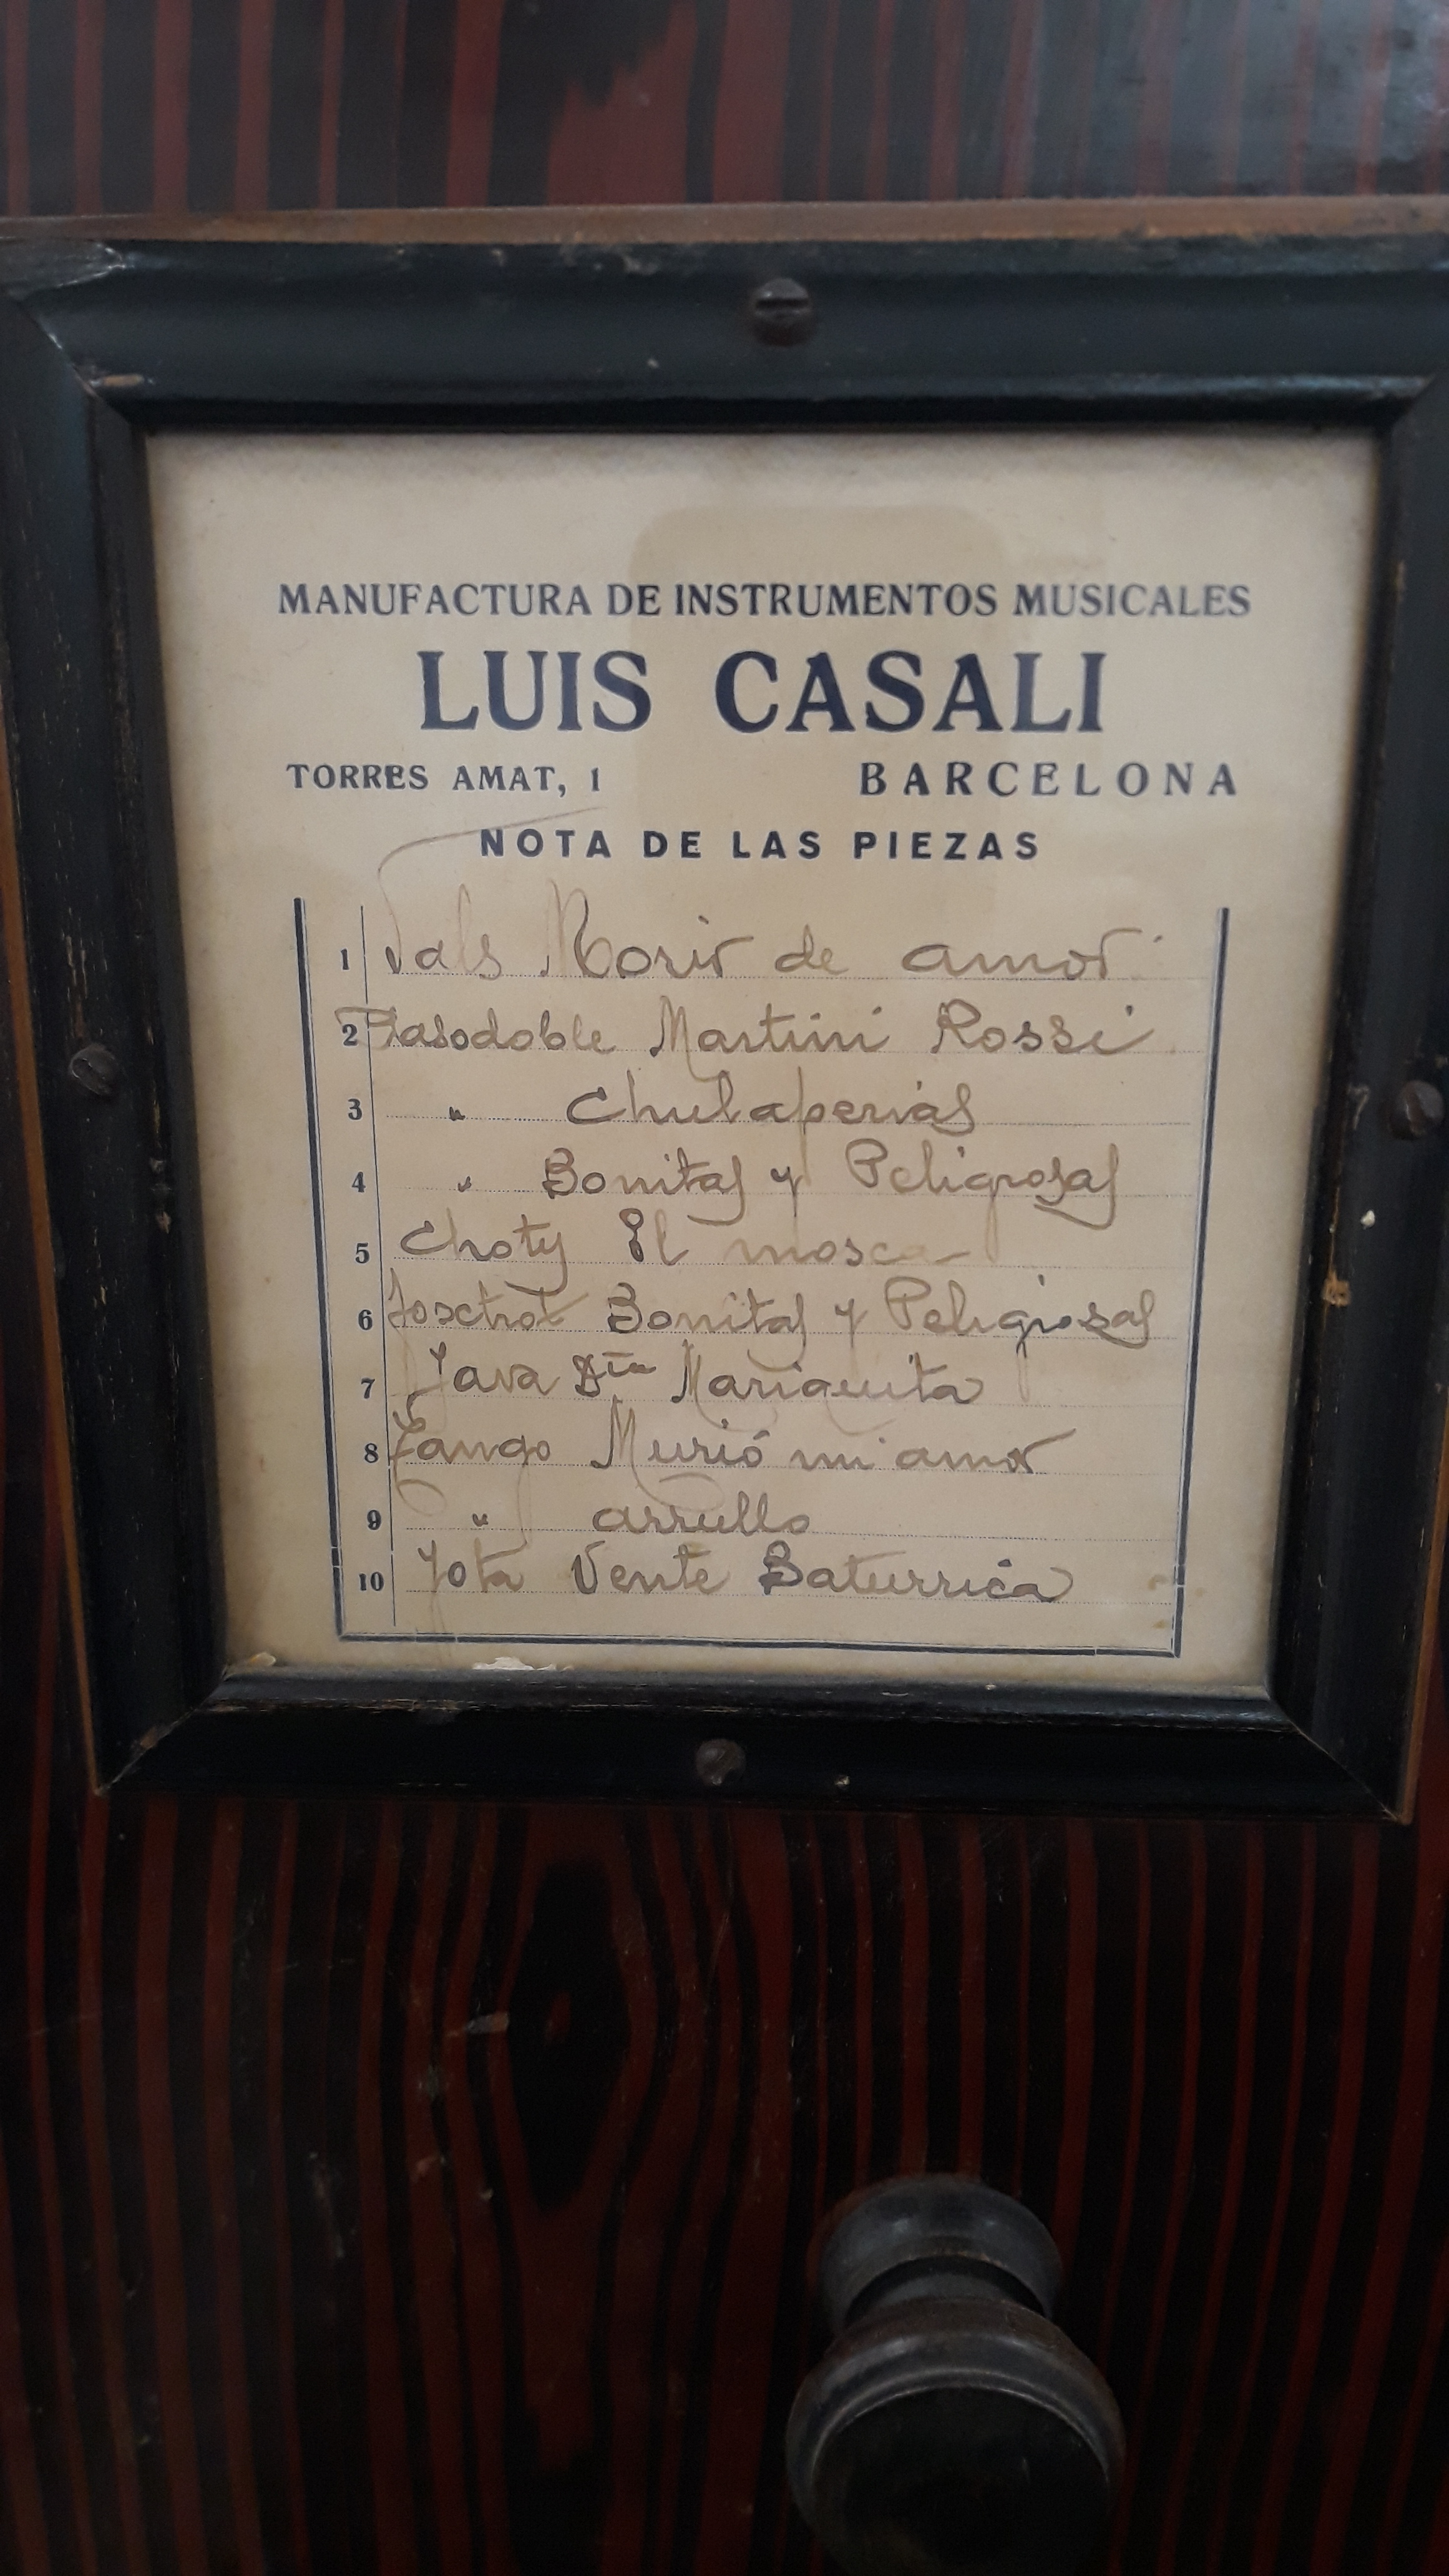 MANUFACTURA DE INSTRUMENTOS MUSICALES
LUIS CASALI
TORRES AMAT, 1 BARCELONA
NOTA DE LAS PIEZAS
1 Vals Morir de amor
2 Pasodoble Martini Rossi
3 " Chulaperias
4 " Bonitas y Peligrosas
5 Choty El mosca
6 Foxtrot Bonitas y Peligrosas
7 Java Sta Mariquita
8 Tango Murió mi amor
9 " arrullo
10 Jota Vente Baturrica